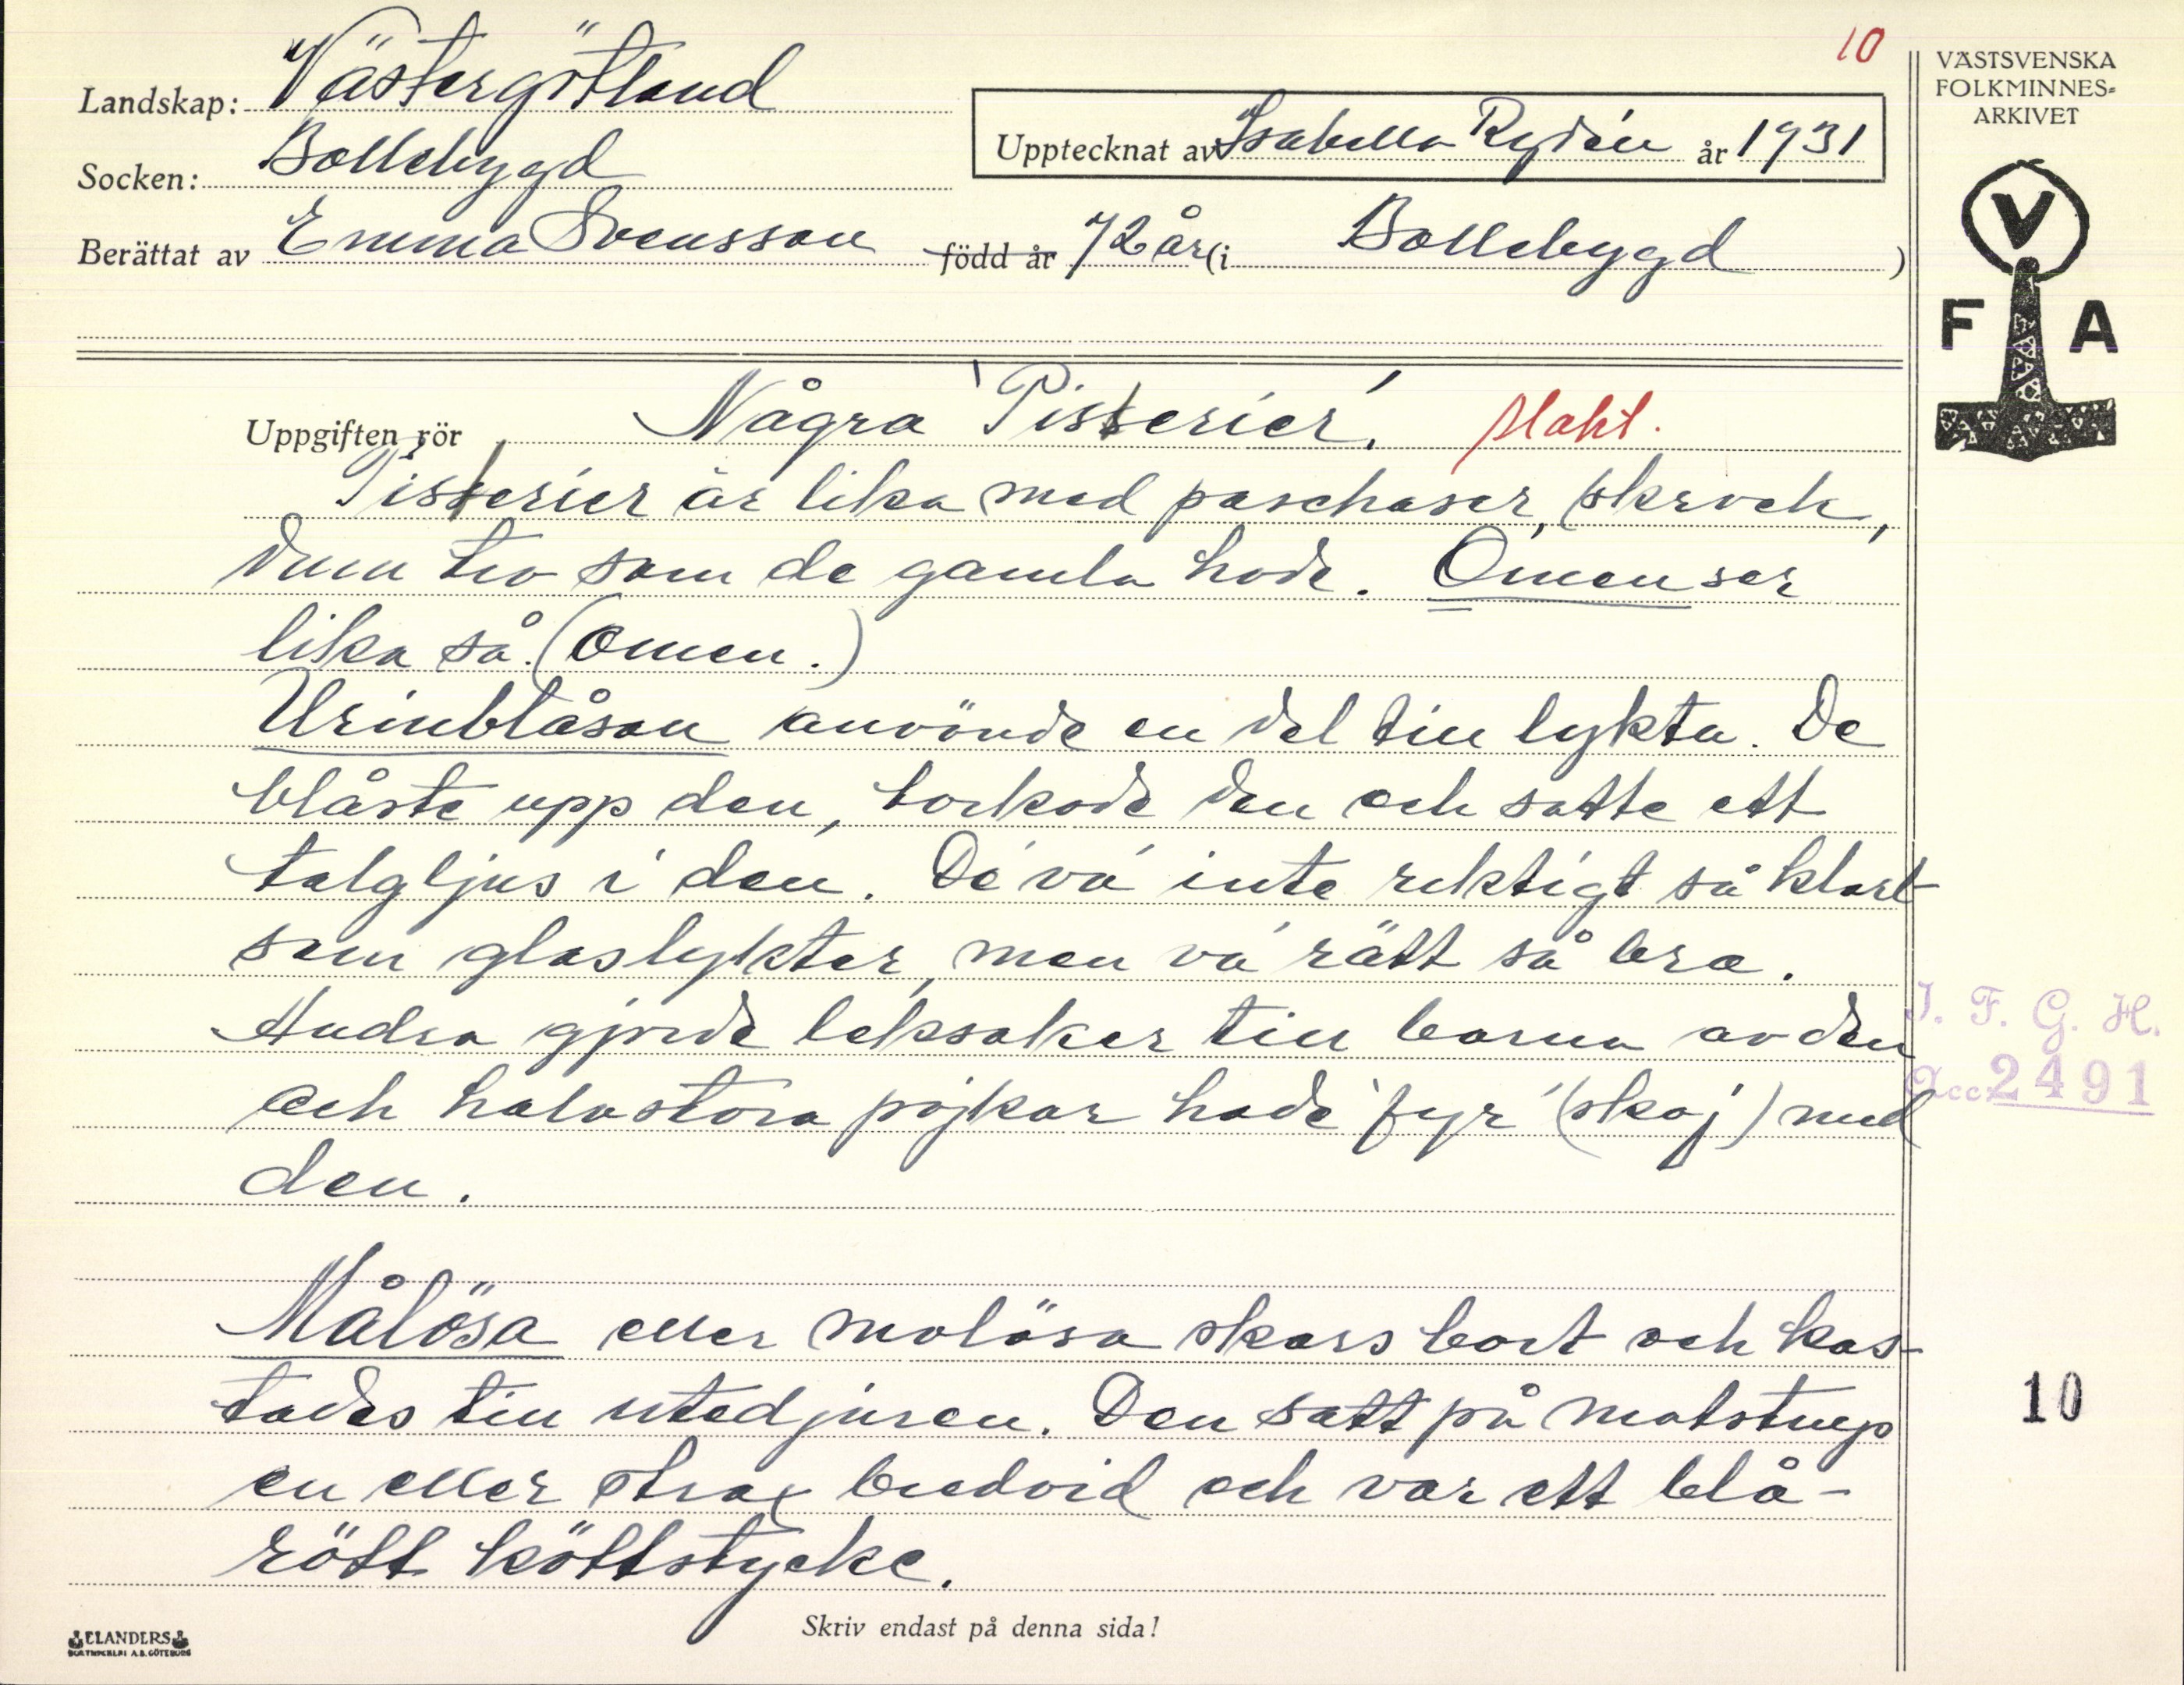 10
Landskap: Västergötland
Socken: Bollebygd
Upptecknat av Isabella Rydén år 1931
Berättat av Emma Svensson född år 72 år (i Bollebygd)
VÄSTSVENSKA
FOLKMINNES-
ARKIVET
V
F A
Uppgiften rör Några 'Pisterier'. Slakt.
Pisterier är lika med paschaser, skrock,
dum tro som de gamla hade. Omenser
lika så. (Omen.)
Urinblåsan använde en del till lykta. De
blåste upp den, torkade den och satte ett
talgljus i den. De' va' inte riktigt så klart
som glaslykter, men va' rätt så bra.
Andra gjorde leksaker till barna av den
och halvstora pojkar hade 'fyr' (skoj) med
den.
I. F. G. H.
Acc. 2491
Målösa eller molösa skars bort och kas-
tades till utedjuren. Den satt på matstrup
en eller strax bredvid och var ett blå-
rött köttstycke.
10
Skriv endast på denna sida!
ELANDERS
BOKTRYCKERI A.B. GÖTEBORG